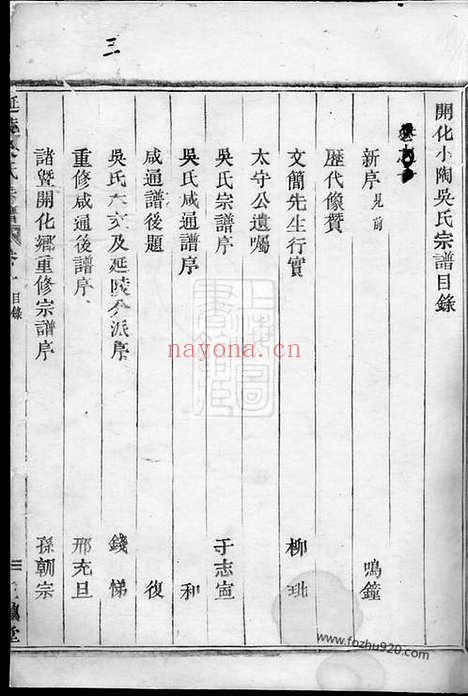 三
開化小陶吳氏宗譜目錄
新序見前 鳴鐘
歷代像贊
文簡先生行實 柳玭
太守公遺囑
吳氏宗譜序 于志寧
吳氏咸通譜序 和
咸通譜後題 復
吳氏大宗及延陵分派序 錢悌
重修咸通後譜序 邢充旦
諸暨開化鄉重修宗譜序 孫朝宗
延陵吳氏宗譜 目錄
nayona.cn
www.fozhu920.com